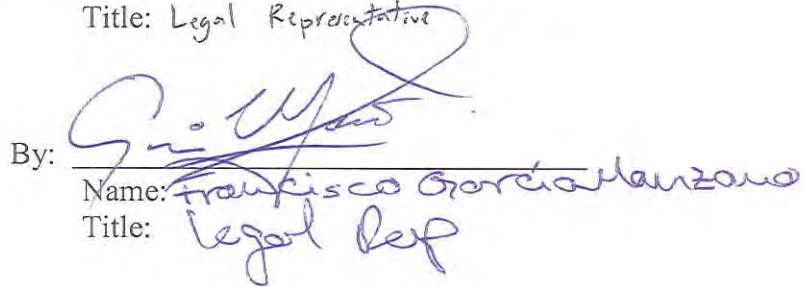 Title: Legal Representative
By:
Name: Francisco García Manzano
Title: Legal Rep